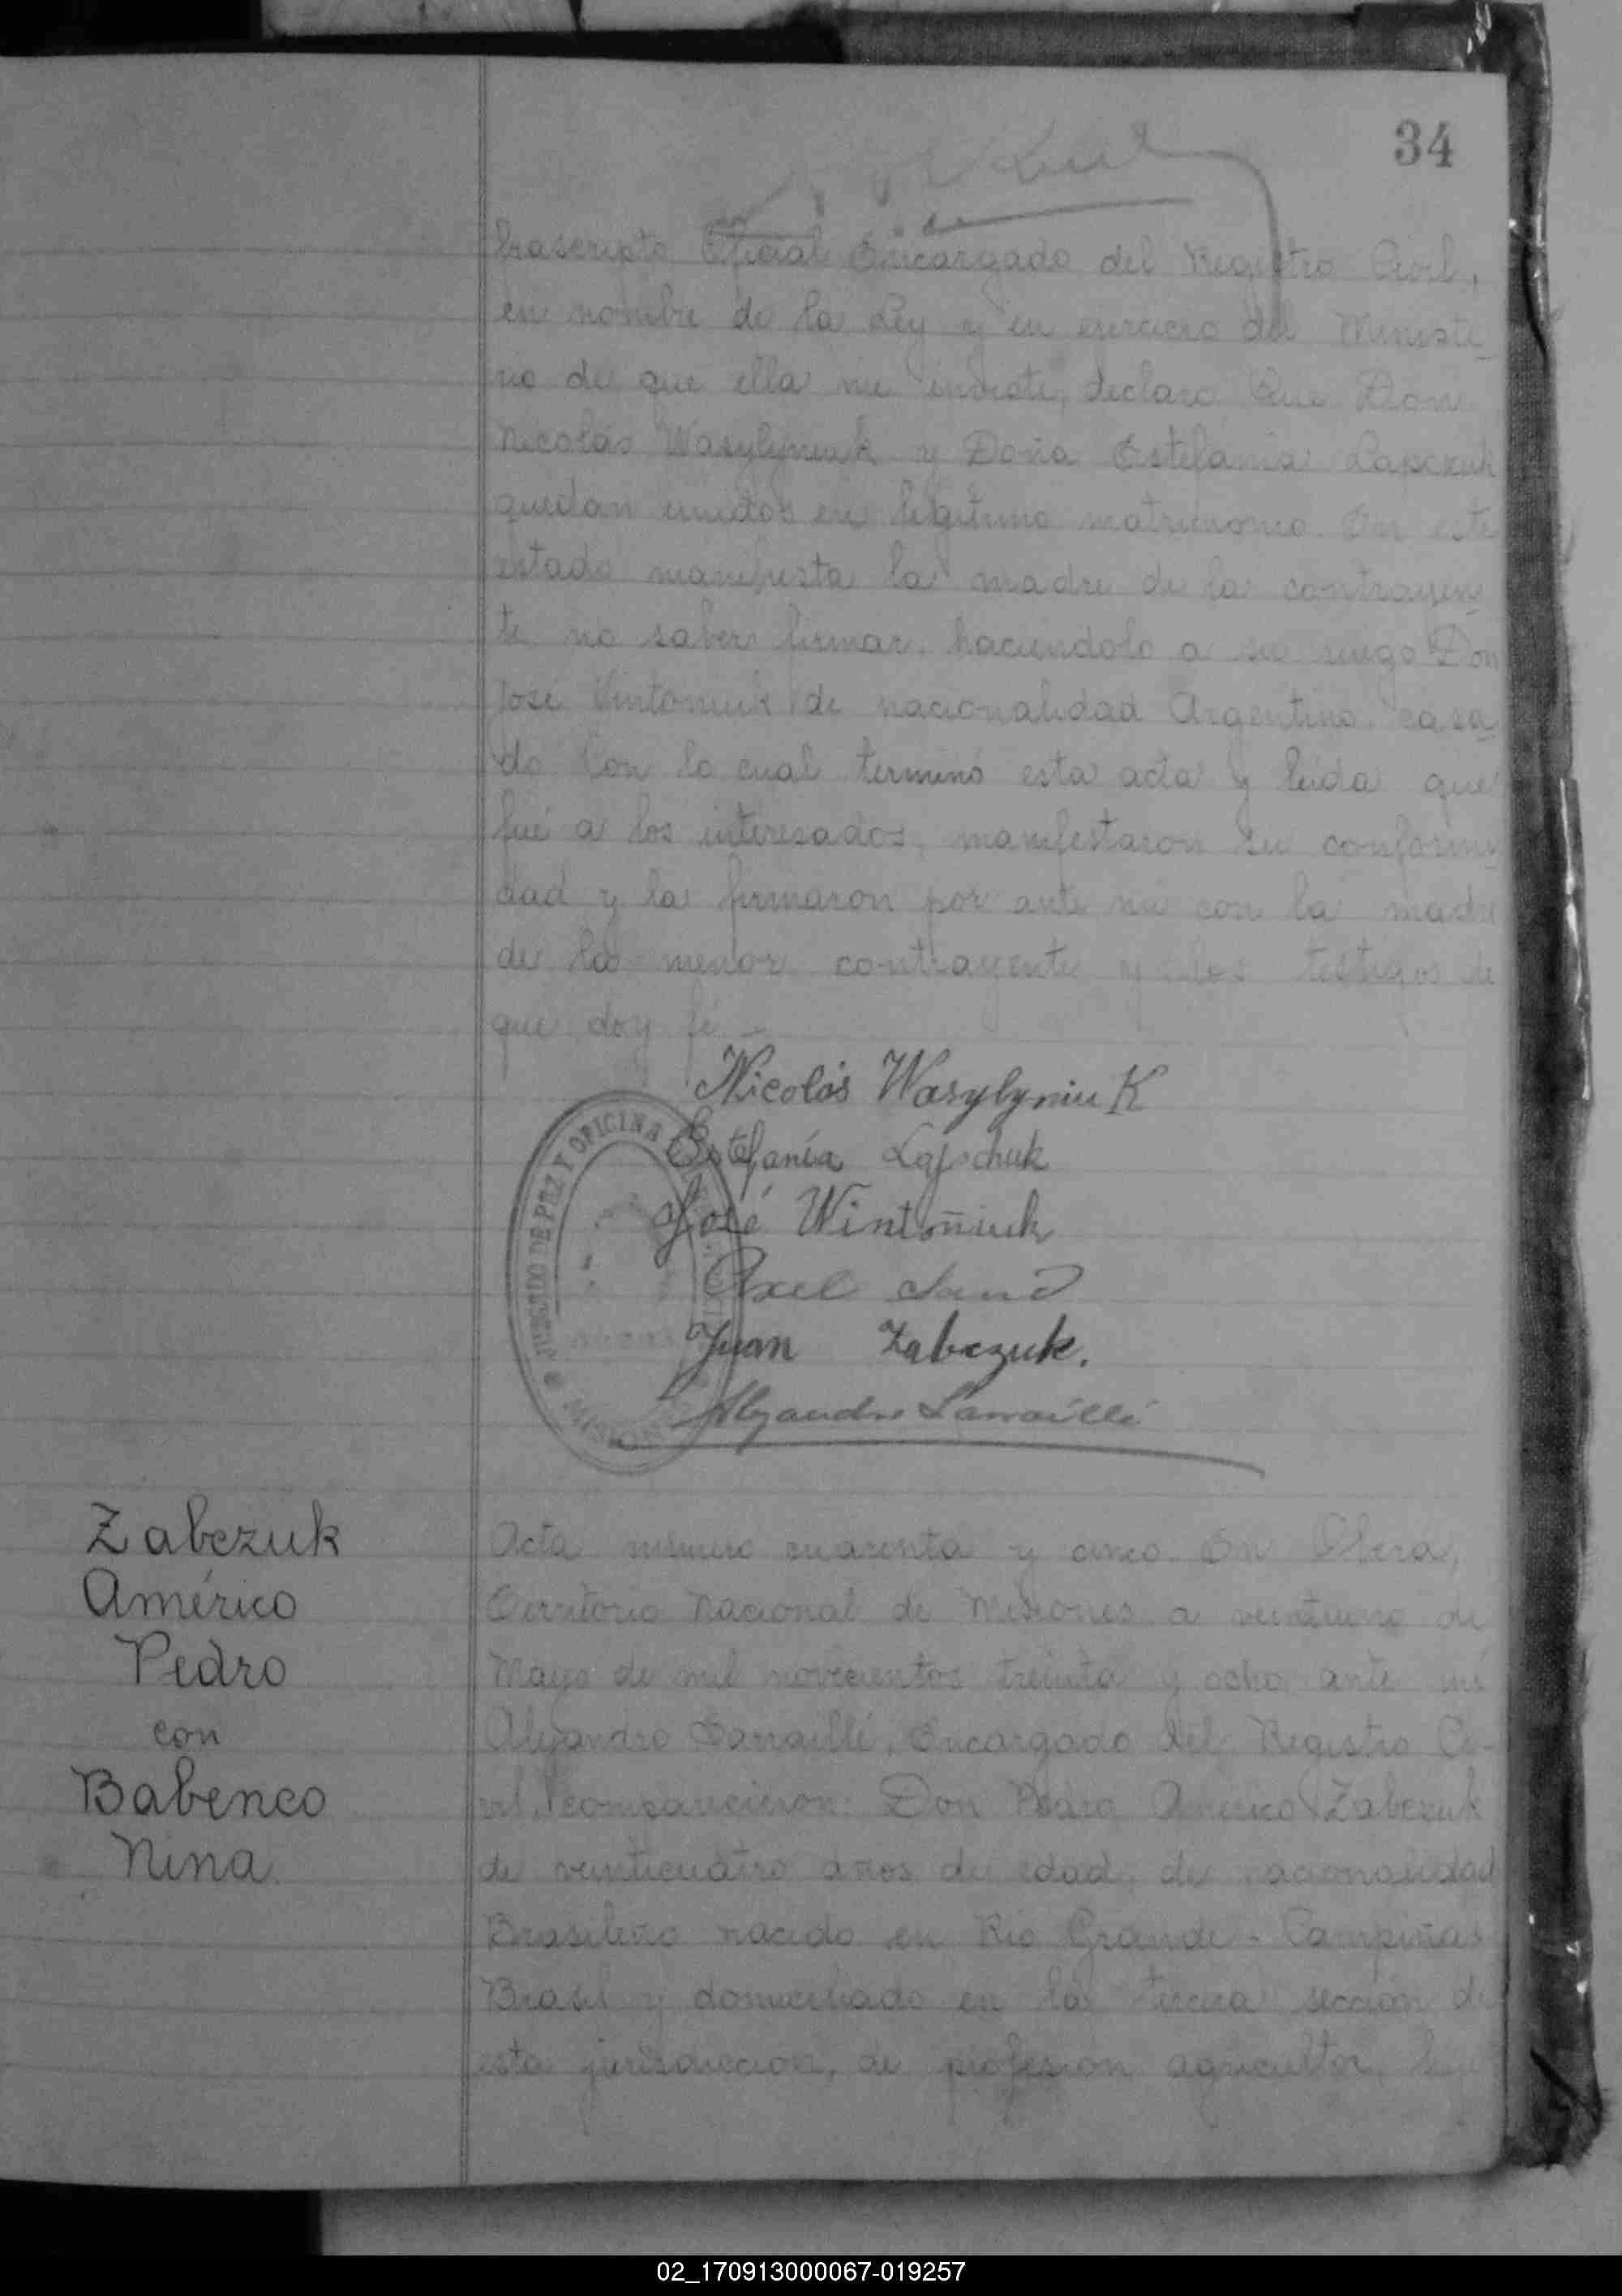 34
Oficial Encargado del Registro Civil,
en nombre de la Ley y en ejercicio del Ministe_
rio de que ella me inviste, declaro Que Don
Nicolás Wasylyniuk y Doña Estefania Lapczuk
quedan unidos en legítimo matrimonio. En este
estado manifiesta la madre de la contrayen_
te no saber firmar, haciendolo a su ruego Don
José Wintoniuk de nacionalidad Argentino casa_
do Con lo cual terminó esta acta y leida que
fué a los interesados, manifestaron su conformi
dad y la firmaron por ante mi con la madre
de la menor contrayente y los testigos de
que doy fé.
Nicolás Wasylyniuk
Estefanía Lapschuk
José Wintoñiuk
Axel Sand
Juan Zabczuk.
Alejandro Larraillé
JUZGADO DE PAZ Y OFICINA
MISIONES
Zabczuk
Américo
Pedro
con
Babenco
Nina
Acta número cuarenta y cinco. En Oberá,
Territorio Nacional de Misiones a veintiuno de
Mayo de mil novecientos treinta y ocho ante mi
Alejandro Larraillé, Encargado del Registro Ci-
vil, comparecieron: Don Pedro Américo Zabczuk
de veinticuatro años de edad, de nacionalidad
Brasileño nacido en Rio Grande - Campiñas
Brasil y domiciliado en la tercera sección de
esta jurisdiccion, de profesión agricultor,